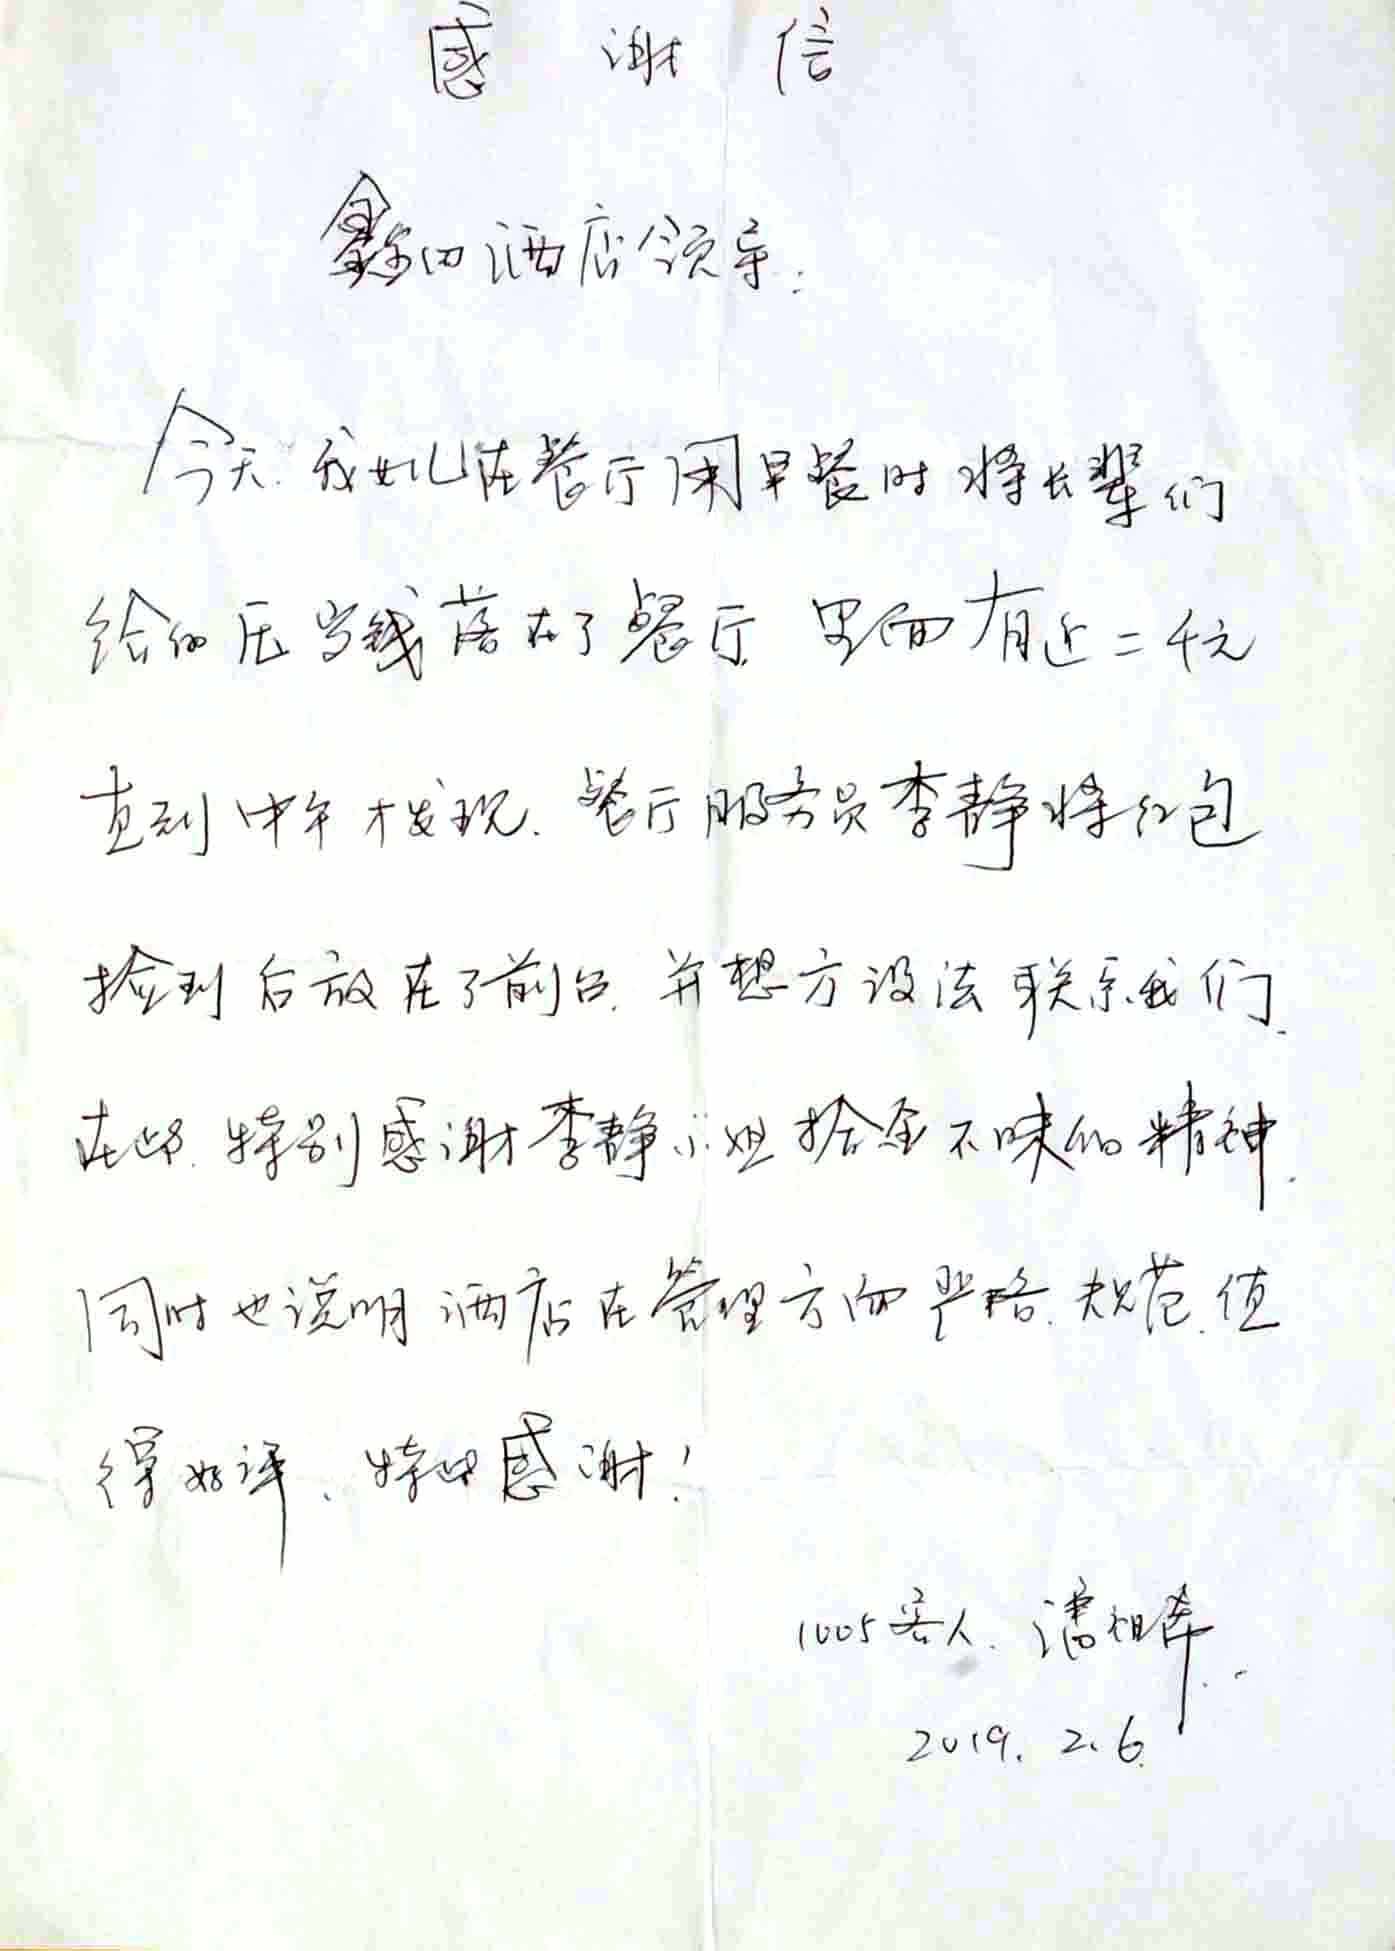 感谢信
酒店领导:
今天.我女儿在餐厅用早餐时将长辈们
给的压岁钱落在了餐厅.里面有近二千元
直到中午才发现.餐厅服务员李静将红包
捡到后放在了前台.并想方设法联系我们.
在此.特别感谢李静小姐拾金不昧的精神.
同时也说明酒店在管理方面严格.规范.值
得好评、特此感谢!
1005客人.潘祖
2019.2.6.